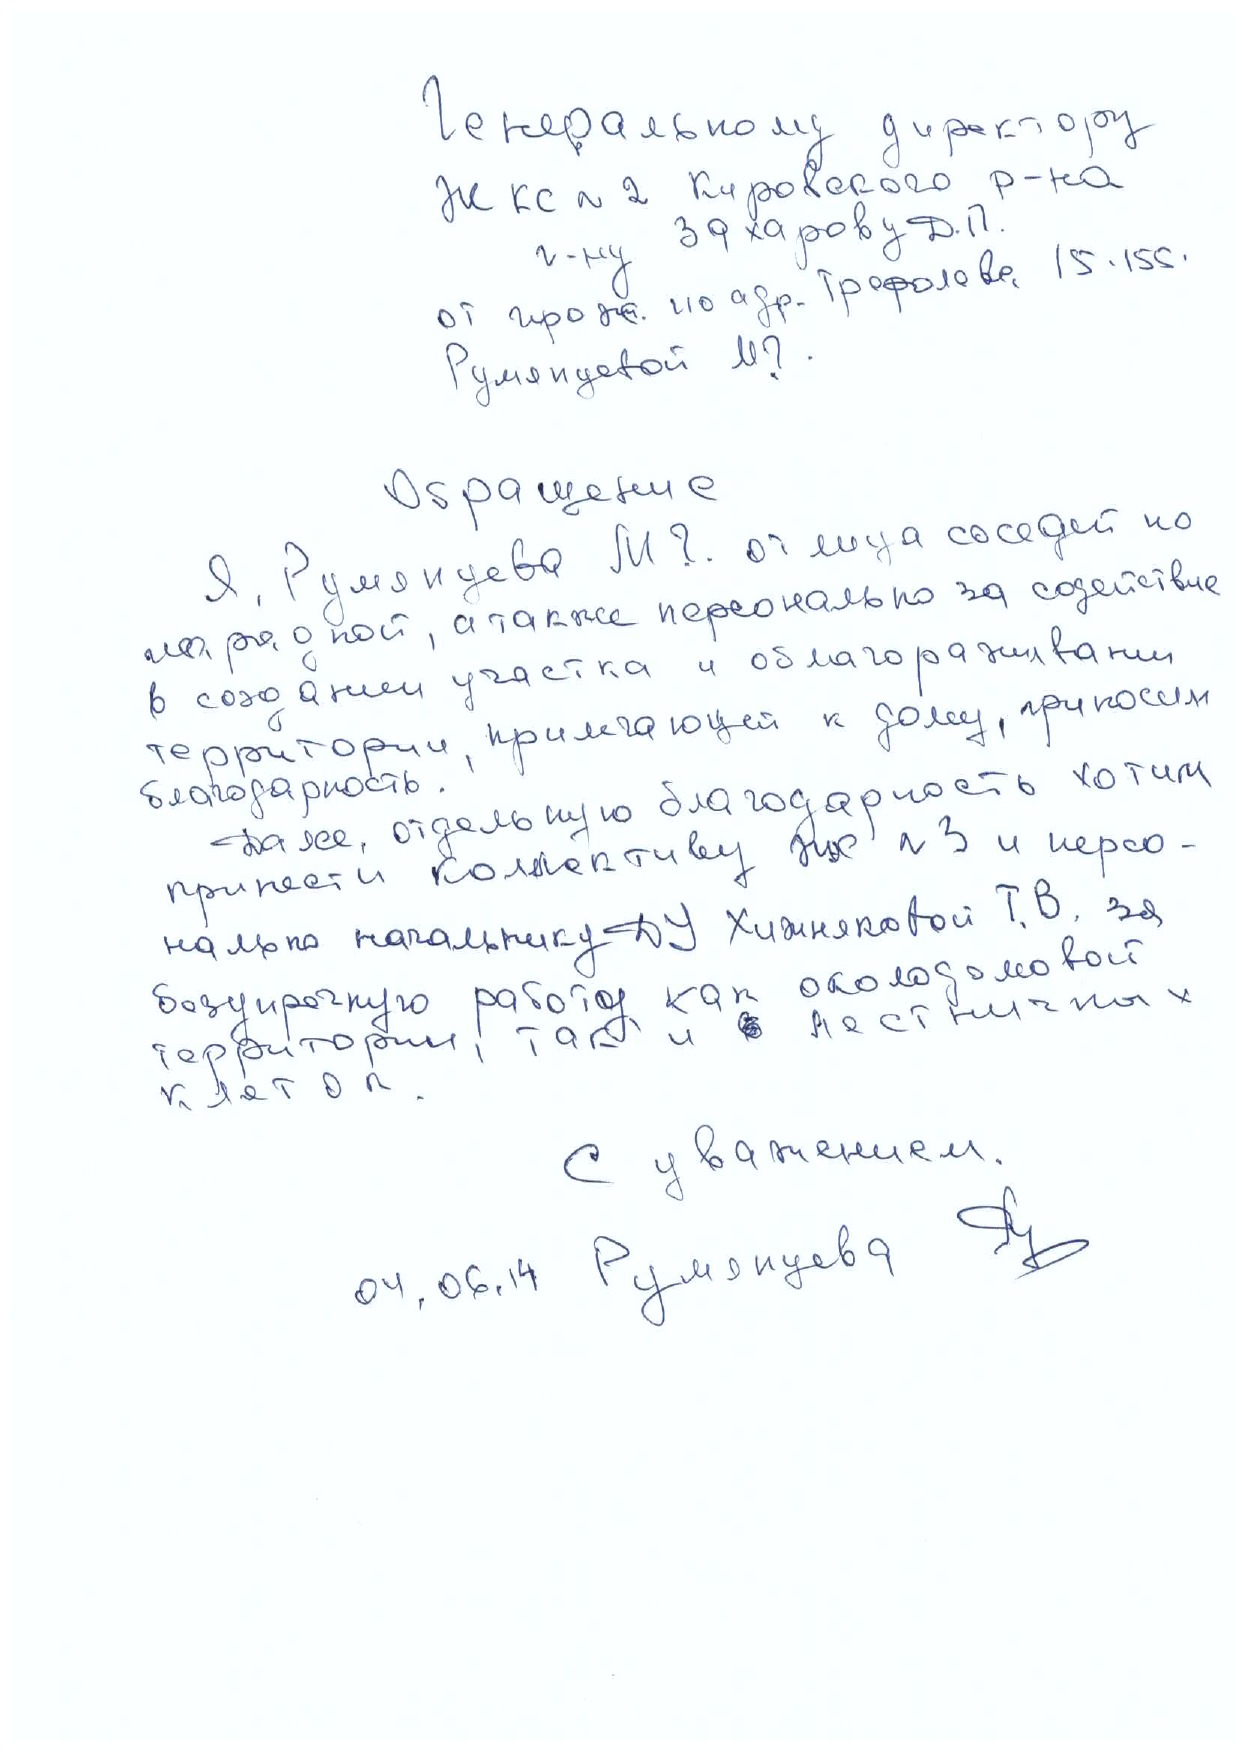 Генеральному директору
ЖКС №2 Кировского р-на
г-ну Захарову Д.П.
от прож. по адр. Трефолева 15.155.
Румянцевой М?.
Обращение
Я, Румянцева М?. от лица соседей по
парадной, а также персонально за содействие
в создании участка и облагораживании
территории, прилегающей к дому, приносим
благодарность.
Далее, отдельную благодарность хотим
принести коллективу № 3 и персо-
нально начальнику ДУ Хижняковой Т.В. за
безупречную работу как околодомовой
территории, так и лестничных
клеток.
С уважением.
04.06.14 Румянцева